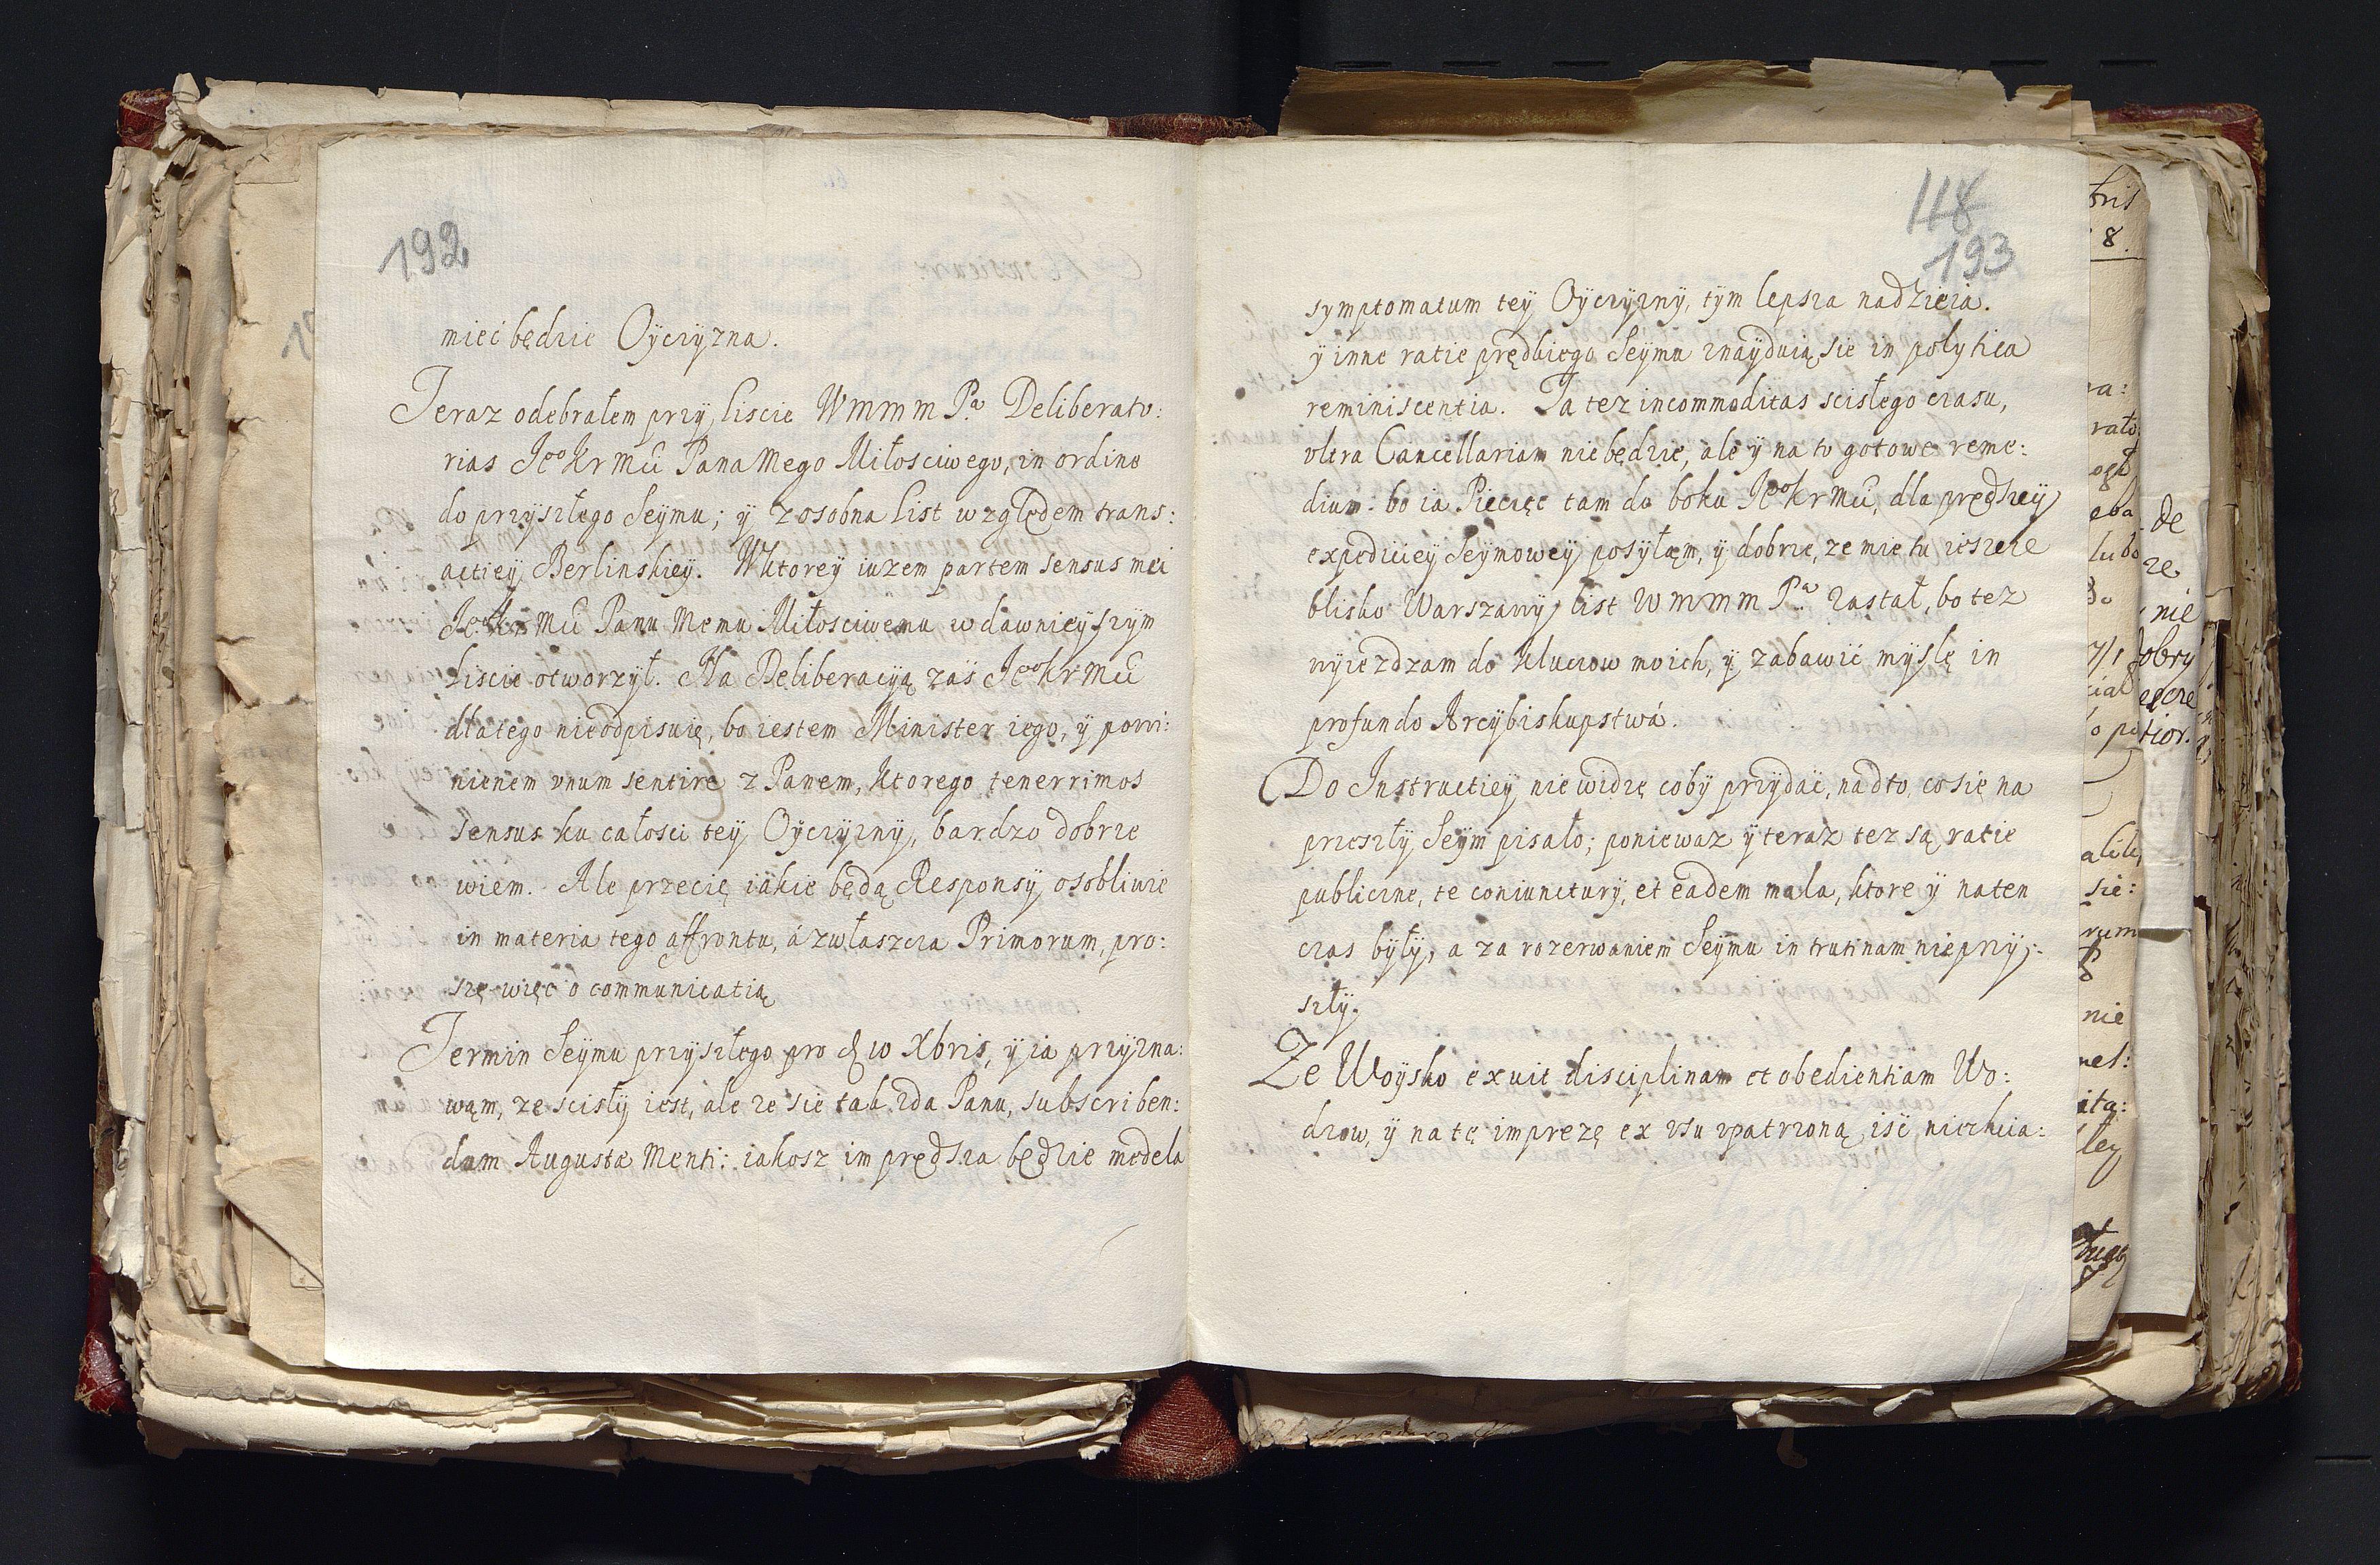 192
mieć będzie Oÿczÿzna.
Teraz odebrałem przÿ liscie Wmmm Pa Deliberato:
rias Jeo Kr Mci Pana Mego Miłosciwego, in ordine
do przÿszłego Seÿmu; ÿ zosobna List względem trans:
actieÿ Berlinskieÿ. Wktoreÿ iuzem partem sensus mei
Jeo Kr Mci Panu Memu Miłosciwemu w dawnieÿszÿm
Liscie otworzÿł. Na Deliberacÿą zaś Jeo Kr Mci
dlatego nieodpisuię, bo iestem Minister iego, ÿ powi:
nienem vnum sentire z Panem, ktorego tenerrimos
sensus ku całosci teÿ Oÿczÿznÿ, bardzo dobrze
wiem. Ale przecię iakie będą Responsÿ osobliwie
in materia tego affrontu, á zwłaszcza Primorum, pro:
szę więc o communicatią
Termin Seÿmu przÿszłego pro d 10 Xbris, ÿ ia przÿzna:
wąm, ze scisłÿ iest, ale ze sie tak zda Panu, subscriben:
dam Augustæ Menti: iakosz im prędsza będzie medela
118
193
symptomatum teÿ Oÿczÿznÿ, tÿm lepsza nadzieia.
ÿ inne ratie prędkiego Seÿmu znaÿduią sie in polytica
reminiscentia. Ta tez incommoditas scisłego czasu,
vltra Cancellariam niebędzie, ale ÿ na to gotowe reme:
dium: bo ia Pieczęć tam do boku Jeo Kr Mci, dla prędszeÿ
expeditieÿ Seÿmoweÿ posyłąm, ÿ dobrze, ze mie tu ieszcze
blisko Warszawÿ list Wmmm Pa zastał, bo tez
wÿiezdzam do Kluczow moich, ÿ zabawić mÿslę in
profundo Arcÿbiskupstwá.
Do Instructieÿ nie widzę cobÿ przÿdać, nadto, co się na
przeszłÿ Seÿm pisało; poniewaz ÿ teraz tez są ratie
publiczne, te coniuncturÿ, et eadem mala, ktore ÿ naten
czas bÿłÿ, a za rozerwaniem Seÿmu in trutinam nieprzÿ:
szłÿ.
Ze Woÿsko exuit disciplinam et obedientiam Wo:
dzow, ÿ na tę imprezę ex vsu vpatrzoną iść niechcia: